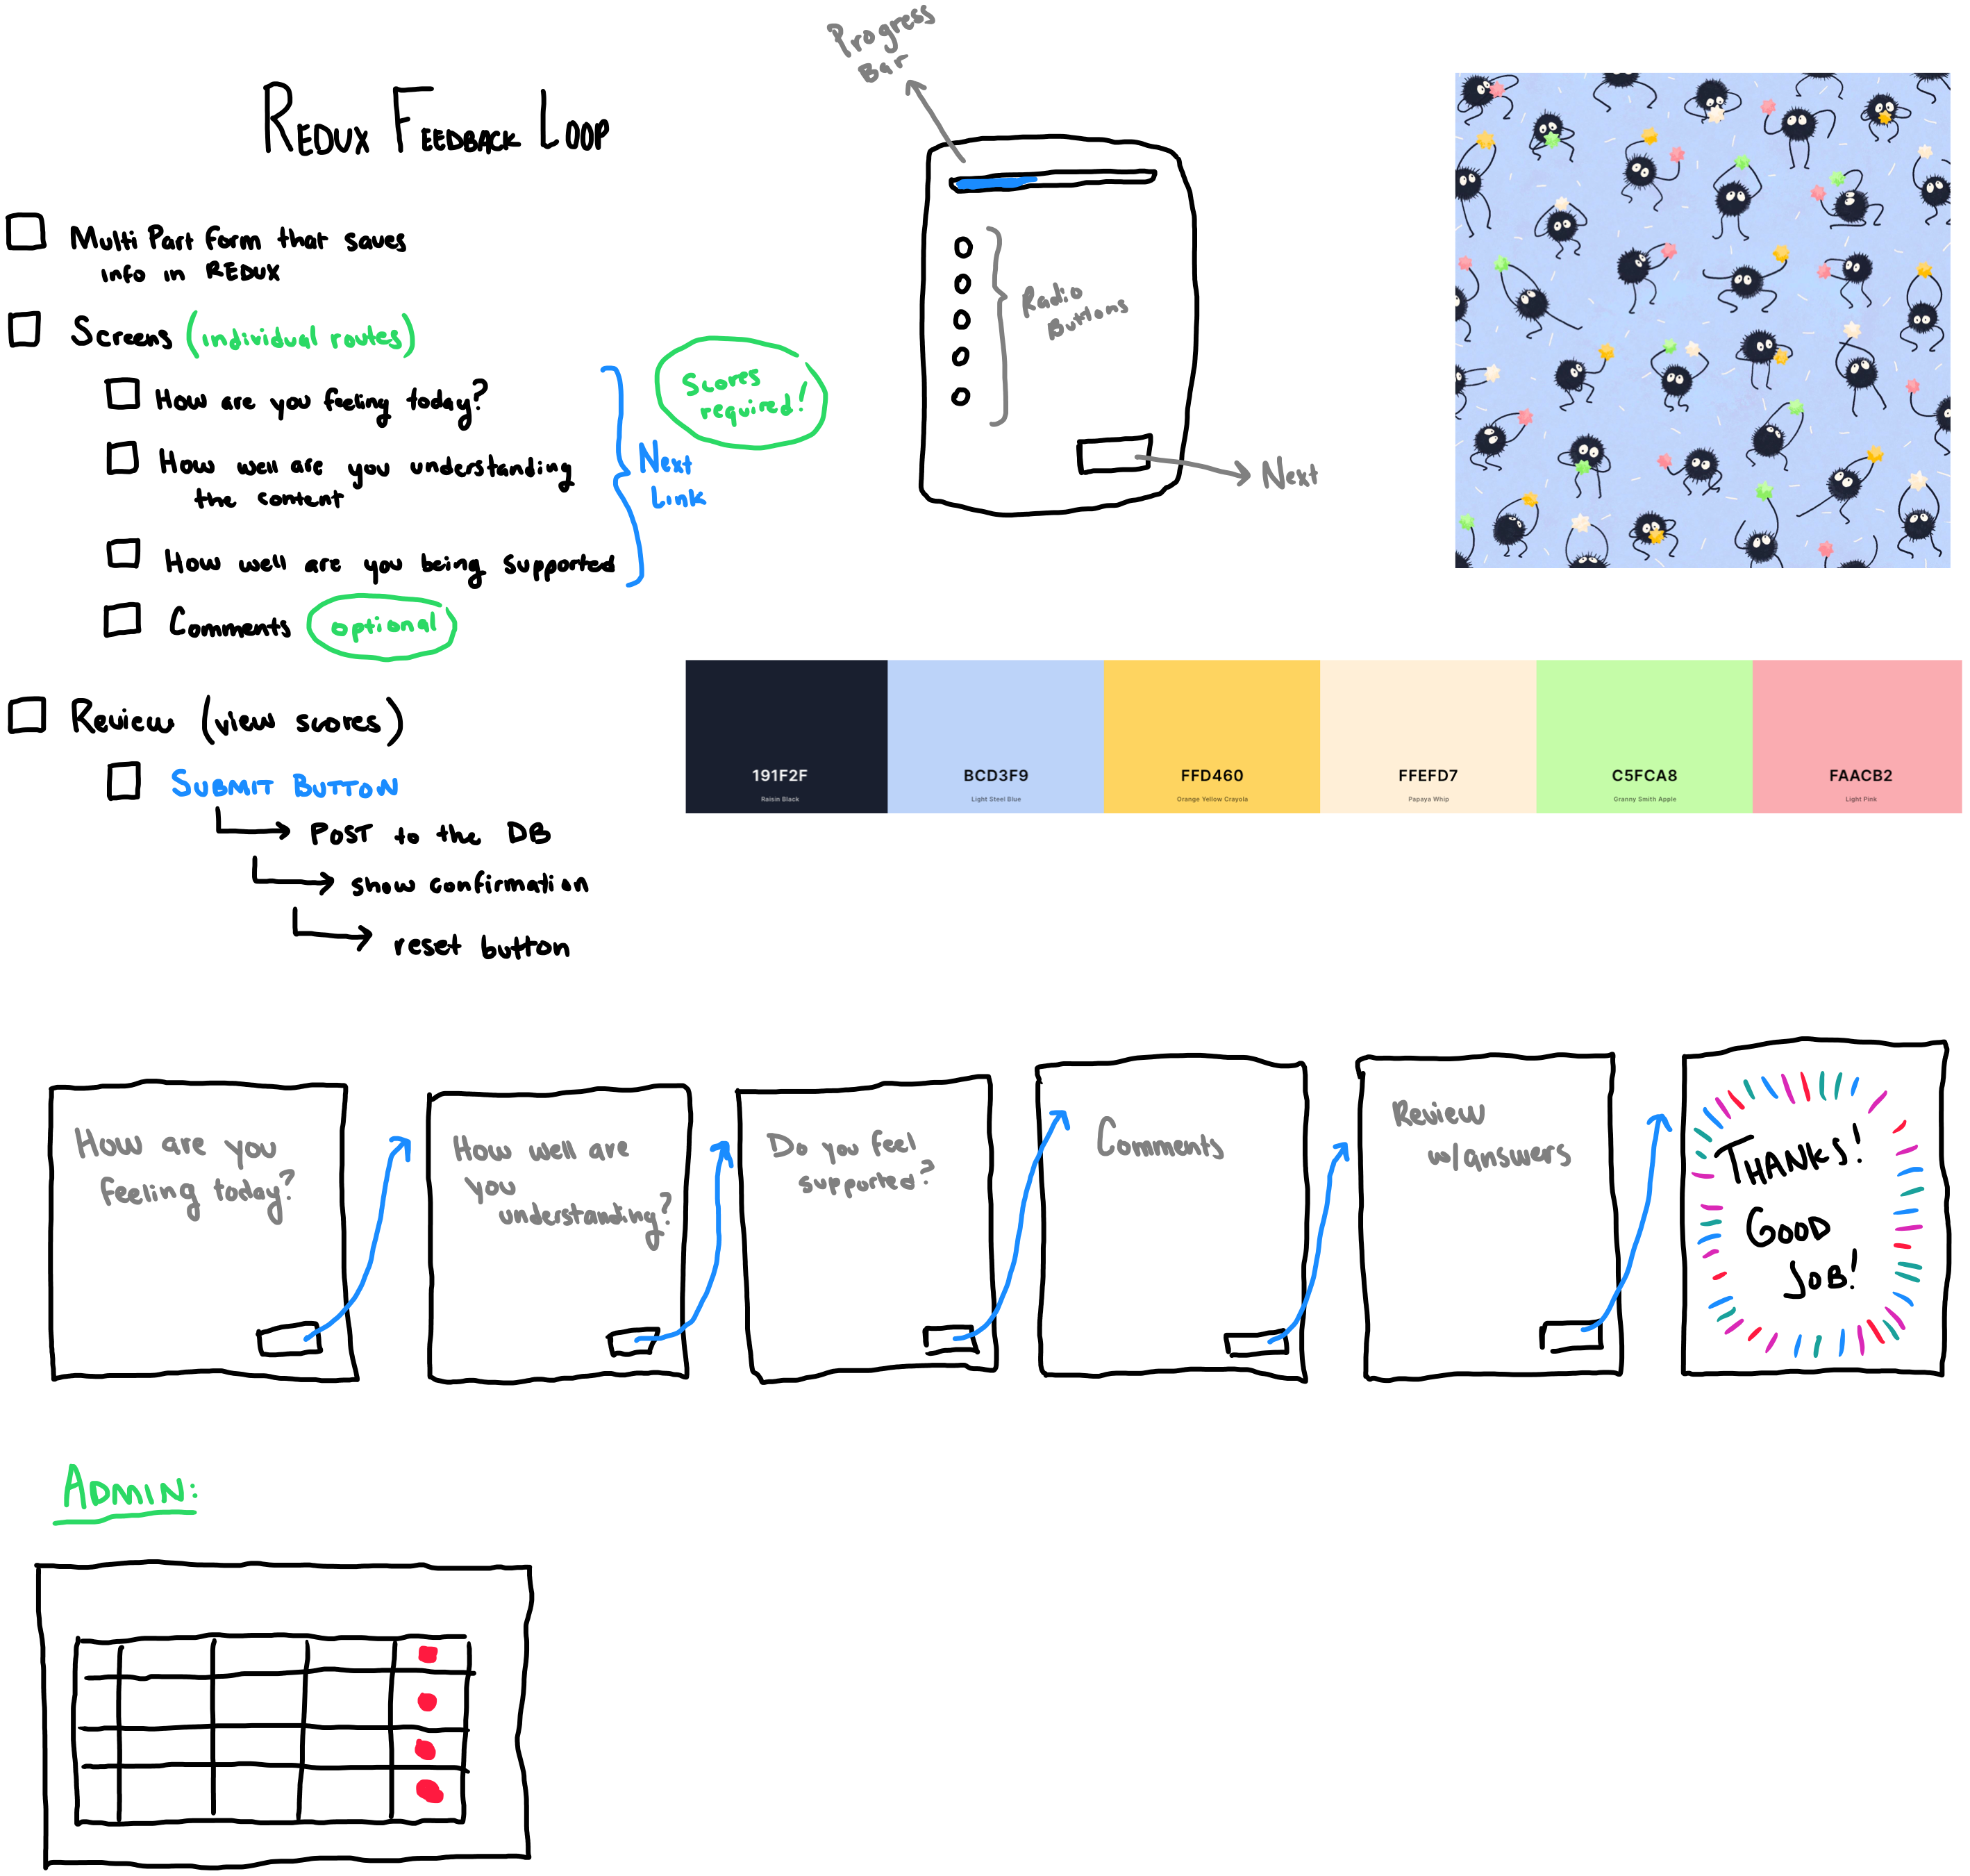 REDUX FEEDBACK LOOP
Multi Part form that saves
info in REDUX
Screens (individual routes)
How are you feeling today?
How well are you understanding
the content
How well are you being supported
Comments optional
Next
Link
Scores
required!
Review (view scores)
SUBMIT BUTTON
POST to the DB
show confirmation
reset button
Progress
Bar
Radio
Buttons
Next
191F2F
Raisin Black
BCD3F9
Light Steel Blue
FFD460
Orange Yellow Crayola
FFEFD7
Papaya Whip
C5FCA8
Granny Smith Apple
FAACB2
Light Pink
How are you
feeling today?
How well are
you
understanding?
Do you feel
supported?
Comments
Review
w/answers
THANKS!
GOOD
JOB!
ADMIN: